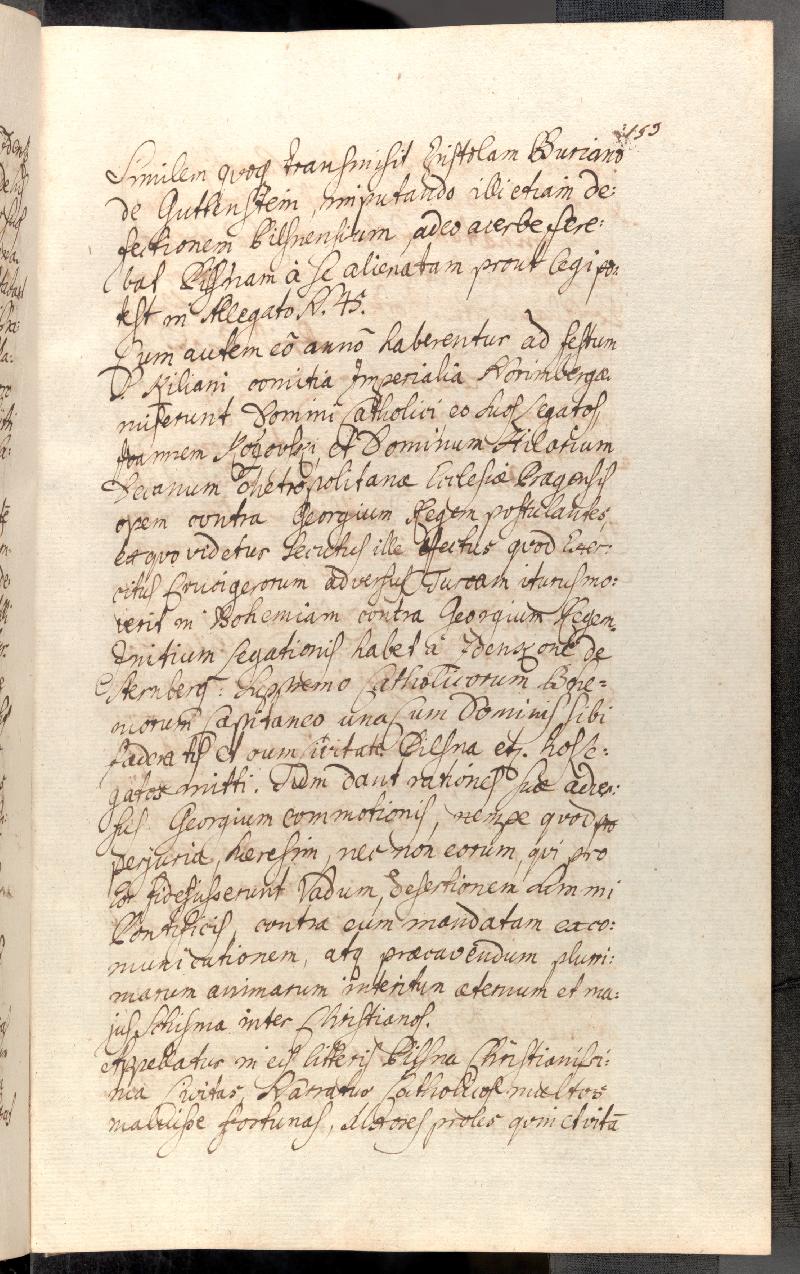 153
Similem quoq transmisit Epistolam Buriano
de Guttenstein, imputando illi etiam de:
fectionem Pilsnensium, adeo acerbe fere:
bat Pilsnam à se alienatam prout legi po:
test in Allegato N. 45.
Cum autem eō annō haberentur ad festum
D. Kiliani comitia Imperialia Norimbergæ
miserunt Domini Catholici eo suos Legatos
Joannem et Dominum Hilarium
Decanum Metropolitanæ Ecclesiæ Pragensis
opem contra Georgium Regem postulantes,
ex quo videtur secutus ille effectus quod Exer:
citus Crucigerorum adversus Turcam iturus mo:
verit in Bohemiam contra Georgium Regem
Initium Legationis habet à Zdenkone de
Sternberg: Supremo Catholicorum Boe=
morum Capitaneo una cum Dominis sibi
fæderatis et cum civitate Pilsna etz. hos le:
gatos mitti. Tum dant rationes suæ adver:
sus Georgium commotionis, nempe quod
perjuria, hæresim, nec non eorum, qui pro
fidejusserunt Vadum, desertionem summi
Pontificis, contra eum mandatam exco:
municationem, atq præcavendum pluri:
marum animarum interitum æternum et ma:
jus Schisma inter Christianos.
Appellatur in eis litteris Pilsna Christianissi:
ma Civitas, Narratur Catholicos multos
maluisse fortunas, Uxores proles quin et vitā